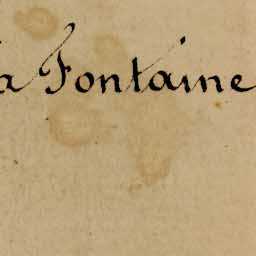 la Fontaine